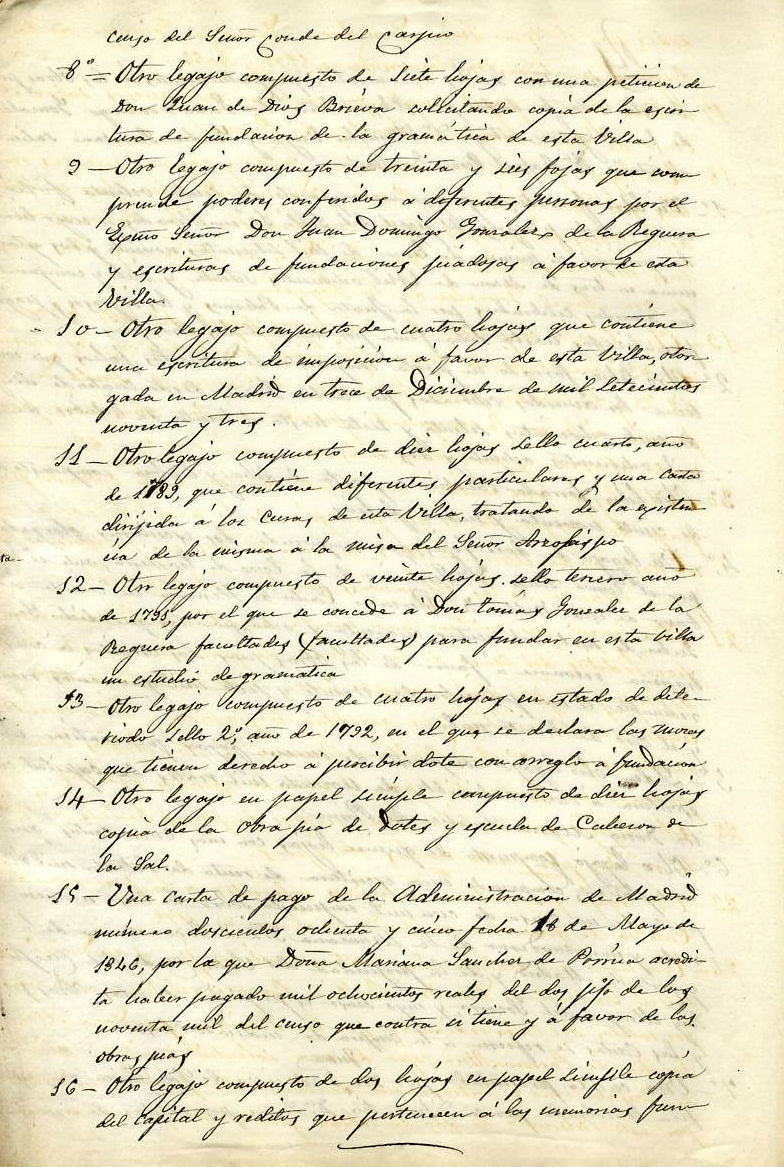 censo del Señor Conde del Carpio
8º = Otro legajo compuesto de siete hojas con una peticion de
Don Juan de Dios Brieva solicitando copia de la escri
tura de fundacion de la gramática de esta Villa
9 — Otro legajo compuesto de treinta y seis fojas que com
prende poderes conferidos á diferentes personas por el
Exmo Señor Don Juan Domingo Gonzalez de la Reguera
y escrituras de fundaciones piadosas á favor de esta
Villa.
10 — Otro legajo compuesto de cuatro hojas que contiene
una escritura de imposicion á favor de esta Villa, otor
gada en Madrid en trece de Diciembre de mil setecientos
noventa y tres.
11 — Otro legajo compuesto de diez hojas sello cuarto, año
de 1789, que contiene diferentes particulares y una carta
dirijida á los curas de esta Villa, tratando de la existen
cia de la misma á la misa del Señor Arzobispo
ta-
12 — Otro legajo compuesto de veinte hojas sello tercero año
de 1795, por el que se concede á Don tomás Gonzalez de la
Reguera facultades (facultades) para fundar en esta villa
un estudio de gramatica
13 — Otro legajo compuesto de cuatro hojas en estado de dete-
riodo sello 2º, año de 1792, en el que se declara las mozas
que tienen derecho á percibir dote con arreglo á fundacion
14 — Otro legajo en papel simple compuesto de diez hojas
copia de la obra pia de dotes y escuela de Cabezon de
la Sal.
15 — Una carta de pago de la Administracion de Madrid
número doscientos ochenta y cinco fecha 18 de Mayo de
1846, por la que Doña Mariana Sanchez de Porrúa acredi-
ta haber pagado mil ochocientos reales del dos p% de los
noventa mil del censo que contra si tiene y á favor de las
obras pias
16 — Otro legajo compuesto de dos hojas en papel simple copia
del capital y reditos que pertenecen á las memorias fun